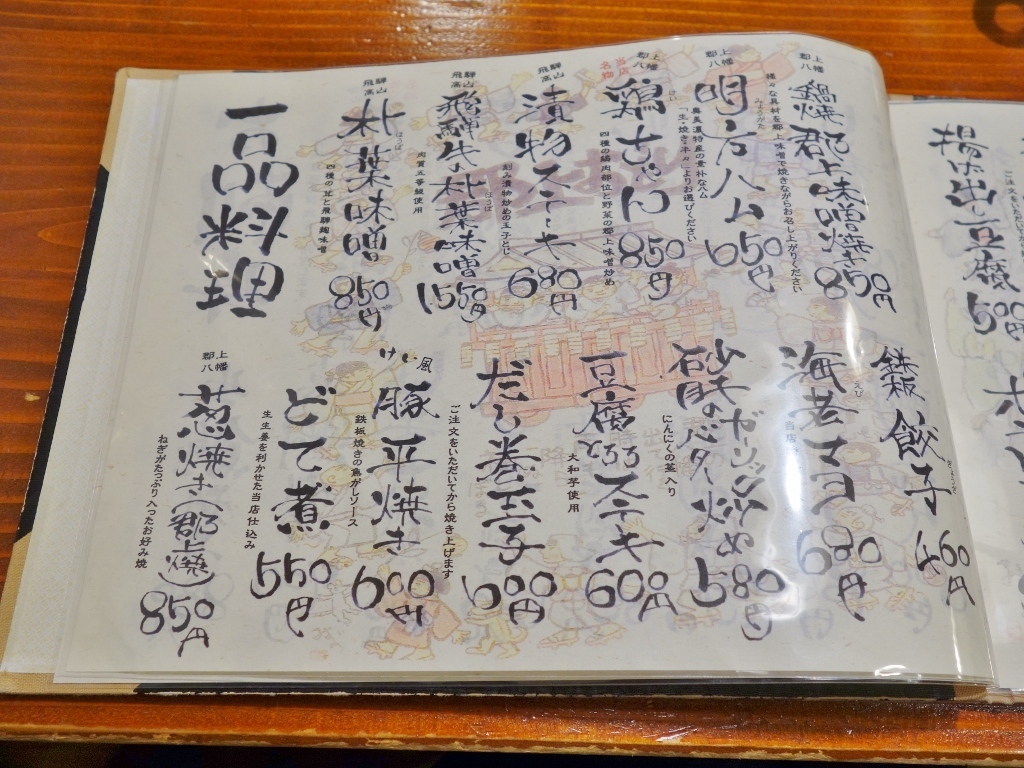 揚げ出し豆腐
500
ご注文をいただいて
郡上八幡
鍋焼 郡上味噌焼き
850円
様々な具材を郡上味噌で焼きながらお召し上がりください
郡上八幡
明方ハム
みょうがた
650円
奥美濃特産の素朴なハム
「生・焼き・半々」よりお選びください
郡上八幡
当店名物
鶏ちゃん
けい
850円
四種の鶏肉部位と野菜の郡上味噌炒め
飛騨高山
漬物ステーキ
680円
刻み漬物炒めの玉子とじ
飛騨高山
飛騨牛の朴葉味噌
ほうば
1550円
肉質五等級使用
飛騨高山
朴葉味噌
ほうば
850円
四種の茸と飛騨麹味噌
一品料理
鉄板 餃子
ぎょうざ
460円
海老マヨ
えび
680円
当店
砂肝のガーリックバター炒め
580円
にんにくの茎入り
豆腐とろろステーキ
600円
大和芋使用
だし巻玉子
600円
ご注文をいただいてから焼き上げます
けい風
豚平焼き
600円
鉄板焼きの焦がしソース
どて煮
550円
生生姜を利かせた当店仕込み
郡上八幡
葱焼き(郡上焼)
850円
ねぎがたっぷり入ったお好み焼